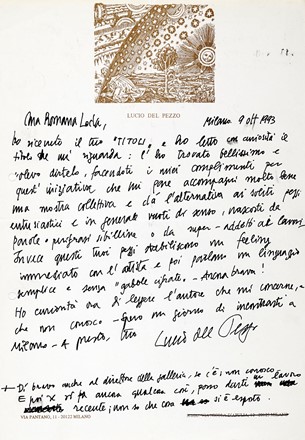 LUCIO DEL PEZZO
Milano 9 Ott 1993
Cara Romana Loda,
ho ricevuto il tuo "TITOLI", e ho letto con curiosità il
titolo che mi riguarda: l'ho trovato bellissimo e
volevo dirtelo, facendoti i miei complimenti per
quest'iniziativa che mi pare accompagni molto bene
una mostra collettiva e dà l'alternativa ai soliti pezzi
entusiastici e in generale vuoti di senso, nascosti da
parole e perifrasi sibilline o da super-addetti ai lavori
Invece questi tuoi pezzi stabiliscono un feeling
immediato con l'artista e poi parlano un linguaggio
semplice e senza "gabole cifrate". - Ancora brava!
Ho curiosità ora di leggere l'autore che mi concerne,-
che non conosco - Spero un giorno di incontrarti a
Milano - A presto, tuo
Lucio del Pezzo
+ Di bravo anche al direttore della galleria, se c'è; non conosco
E poi x si fa ancora qualcosa così, posso darti un lavoro
recente; non so che cosa si è esposto.
VIA PANTANO, 11 - 20122 MILANO